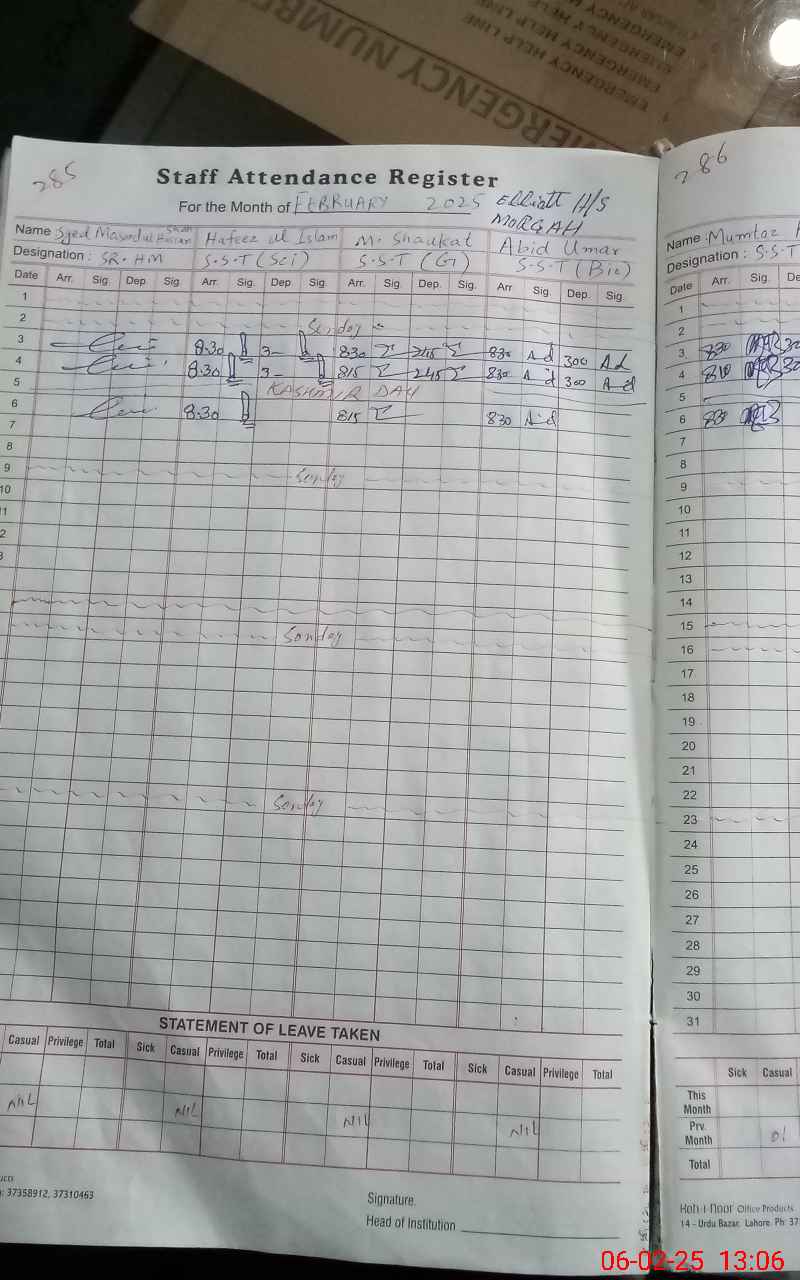 EMERGENCY HELP LINE
EMERGENCY HELP LINE
EMERGENCY HELP LINE
EMERGENCY NUMBER
285
Staff Attendance Register
For the Month of FEBRUARY 2025 Elliott H/S
MORGAH
Name Syed Masood ul Hasan Shah Hafeez ul Islam M. Shaukat Abid Umar
Designation : SR. HM S.S.T (Sci) S.S.T (G) S.S.T (Bio)
Date Arr. Sig. Dep. Sig. Arr. Sig. Dep. Sig. Arr. Sig. Dep. Sig. Arr. Sig. Dep. Sig.
1
2 Sunday
3 8.30 3- 830 245 830 Ad 300 Ad
4 8.30 3- 815 245 830 Ad 300 Ad
5 KASHMIR DAY
6 8.30 815 830 Aid
7
8
9 Sunday
10
11
2
3
Sunday
Sunday
STATEMENT OF LEAVE TAKEN
Casual Privilege Total Sick Casual Privilege Total Sick Casual Privilege Total Sick Casual Privilege Total
NIL NIL NIL NIL
: 37358912, 37310463
Signature.
Head of Institution
286
Name : Mumtaz
Designation : S.S.T
Date Arr. Sig. De
1
2
3 830 30
4 810 30
5
6 830
7
8
9
10
11
12
13
14
15
16
17
18
19
20
21
22
23
24
25
26
27
28
29
30
31
Sick Casual
This Month
Prv. Month 01
Total
Koh-i-Noor Office Products
14 - Urdu Bazar, Lahore. Ph: 37
06-02-25 13:06